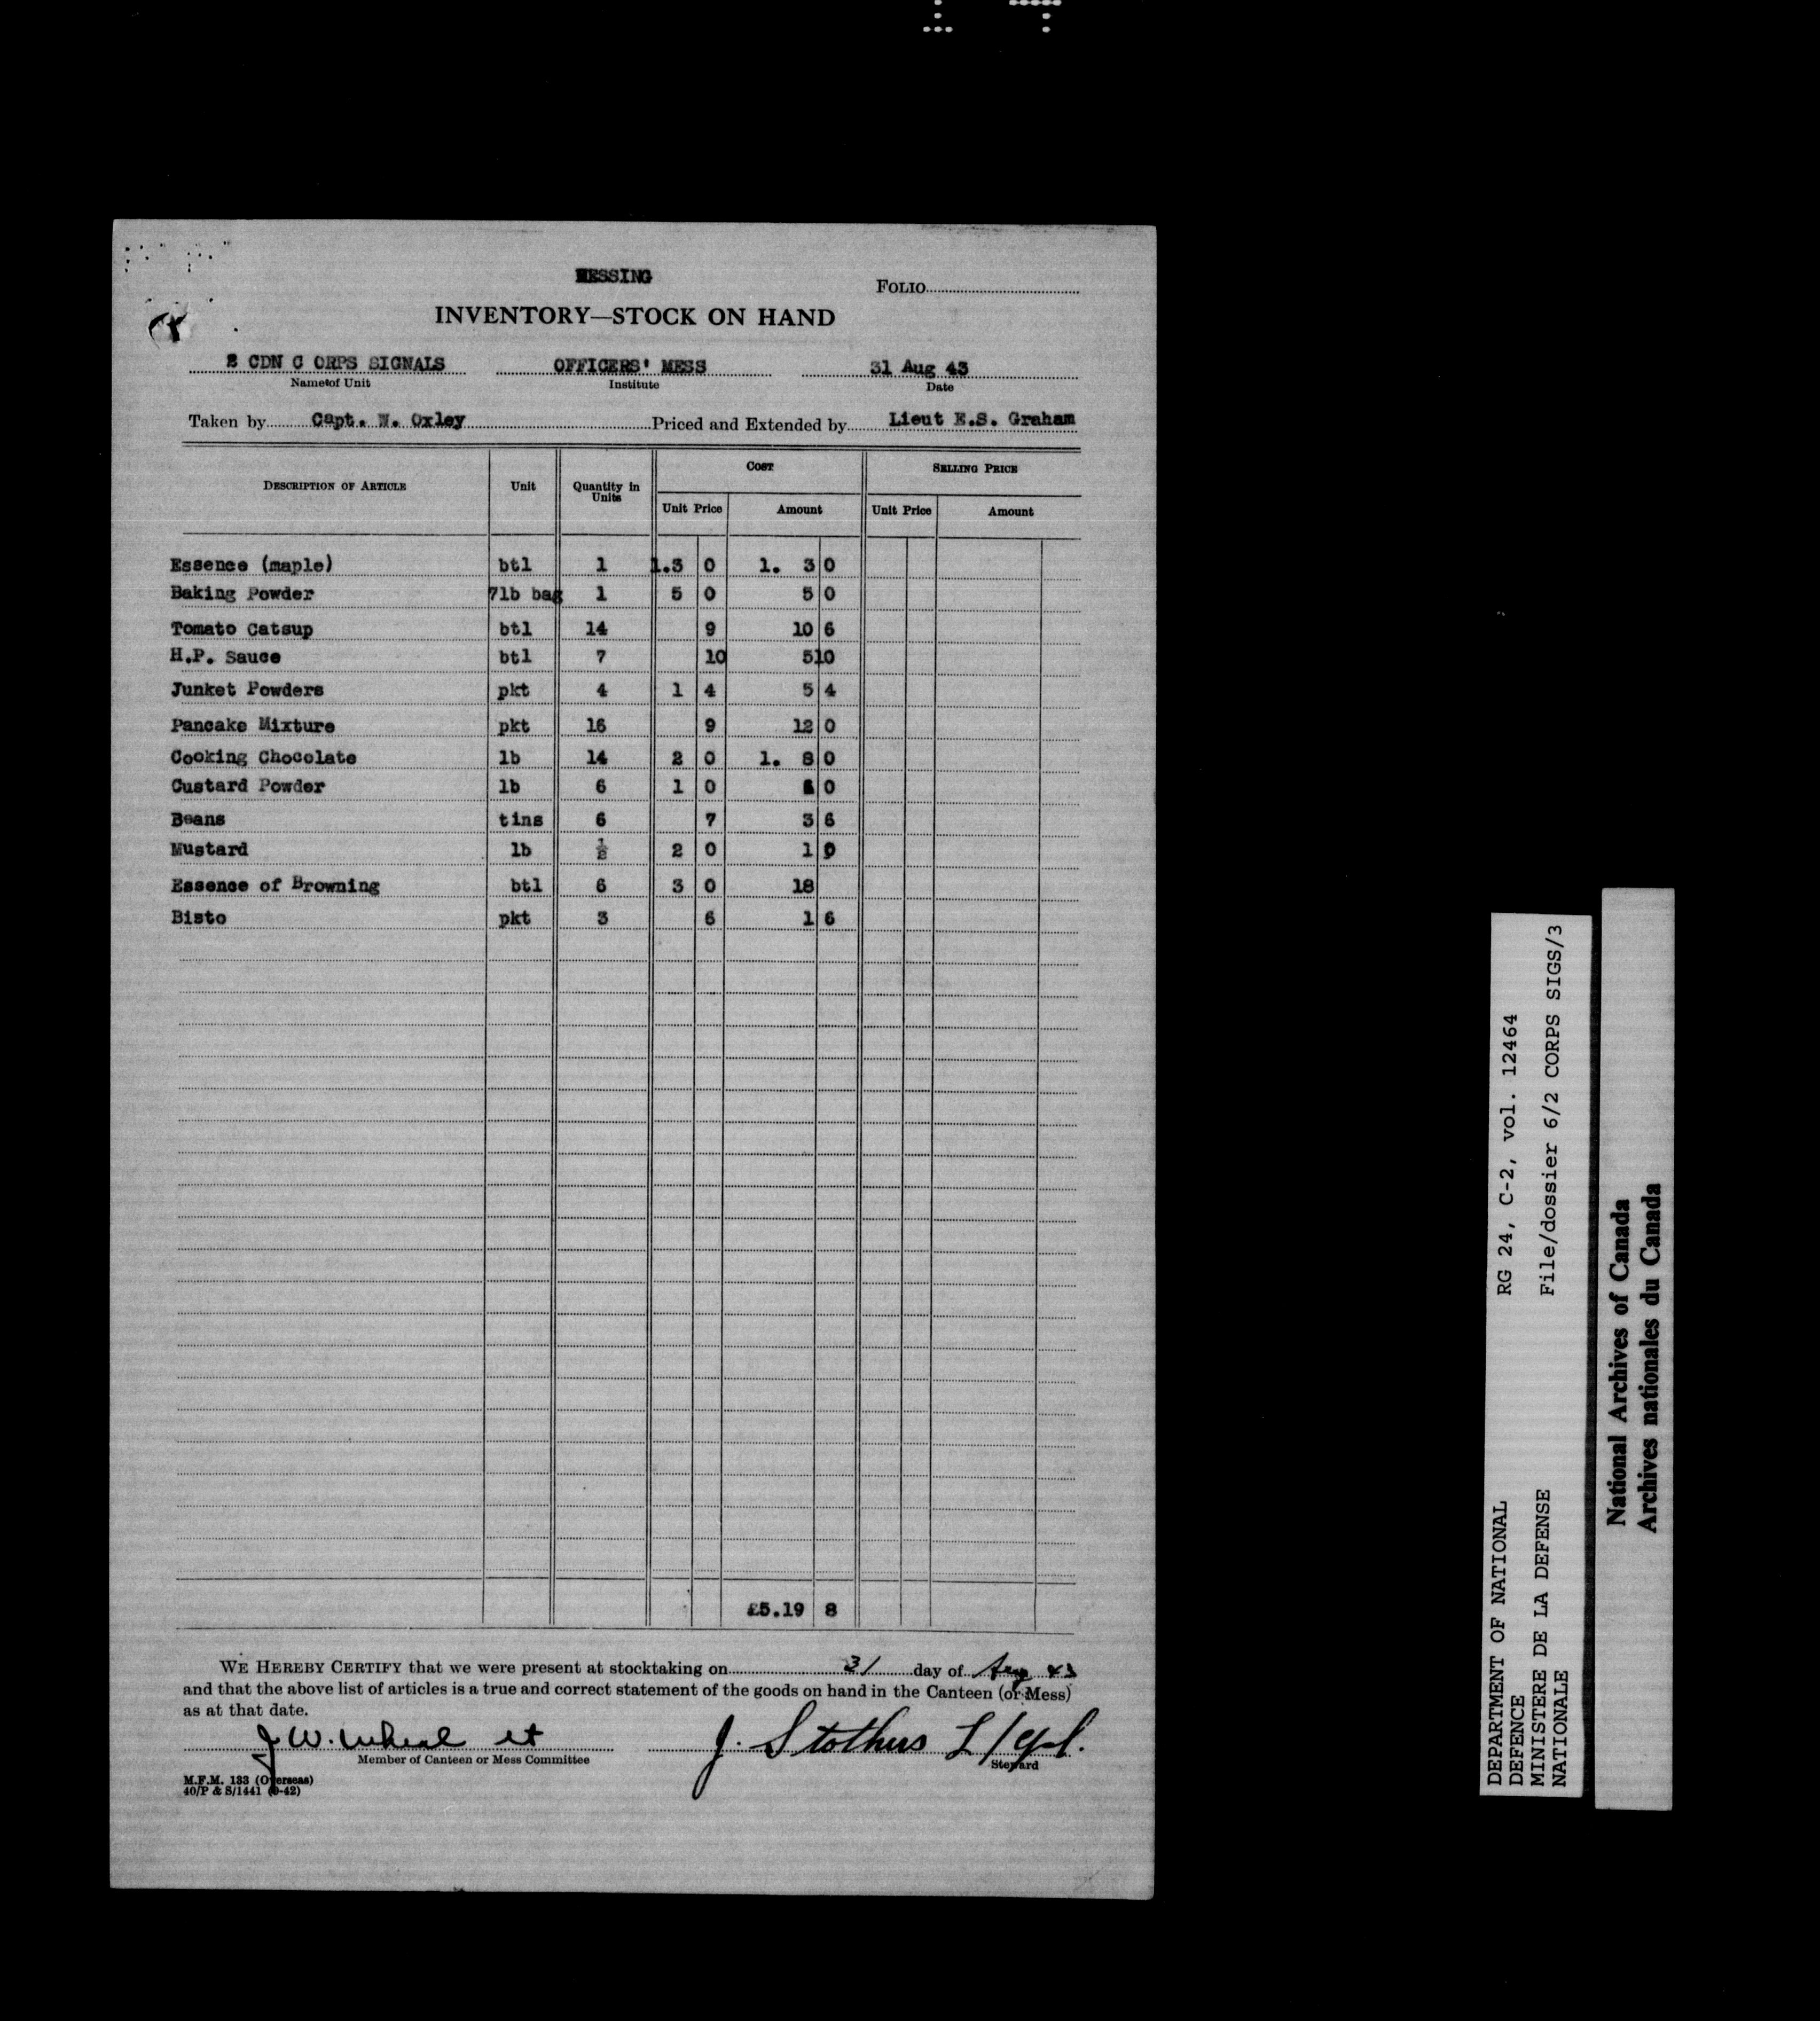 MESSING
FOLIO
INVENTORY—STOCK ON HAND
2 CDN C ORPS SIGNALS OFFICERS' MESS 31 Aug 43
Name of Unit Institute Date
Taken by Capt. W. Oxley Priced and Extended by Lieut E.S. Graham
DESCRIPTION OF ARTICLE Unit Quantity in Units COST SELLING PRICE
Unit Price Amount Unit Price Amount
Essence (maple) btl 1 1.3 0 1. 3 0
Baking Powder 7lb bag 1 5 0 5 0
Tomato Catsup btl 14 9 10 6
H.P. Sauce btl 7 10 5 10
Junket Powders pkt 4 1 4 5 4
Pancake Mixture pkt 16 9 12 0
Cooking Chocolate lb 14 2 0 1. 8 0
Custard Powder lb 6 1 0 6 0
Beans tins 6 7 3 6
Mustard lb ½ 2 0 1 0
Essence of Browning btl 6 3 0 18
Bisto pkt 3 6 1 6
£5.19 8
WE HEREBY CERTIFY that we were present at stocktaking on 31 day of Aug 43
and that the above list of articles is a true and correct statement of the goods on hand in the Canteen (or Mess)
as at that date.
J. Stothers L/Cpl.
Member of Canteen or Mess Committee Steward
M.F.M. 133 (Overseas)
40/P & S/1441 (9-42)
DEPARTMENT OF NATIONAL DEFENCE
MINISTERE DE LA DEFENSE NATIONALE
RG 24, C-2, vol. 12464
File/dossier 6/2 CORPS SIGS/3
National Archives of Canada
Archives nationales du Canada